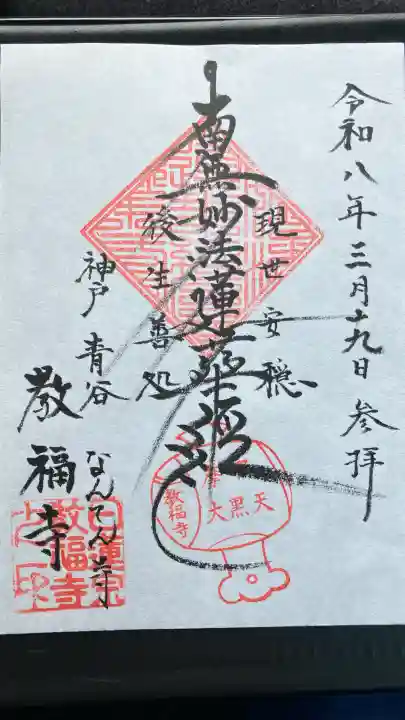 令和八年三月十九日 参拝
現世安穏
南無妙法蓮華経
後生善処
神戸 青谷
なんてん寺
教福寺
大黒天
教福寺
日蓮宗
教福寺